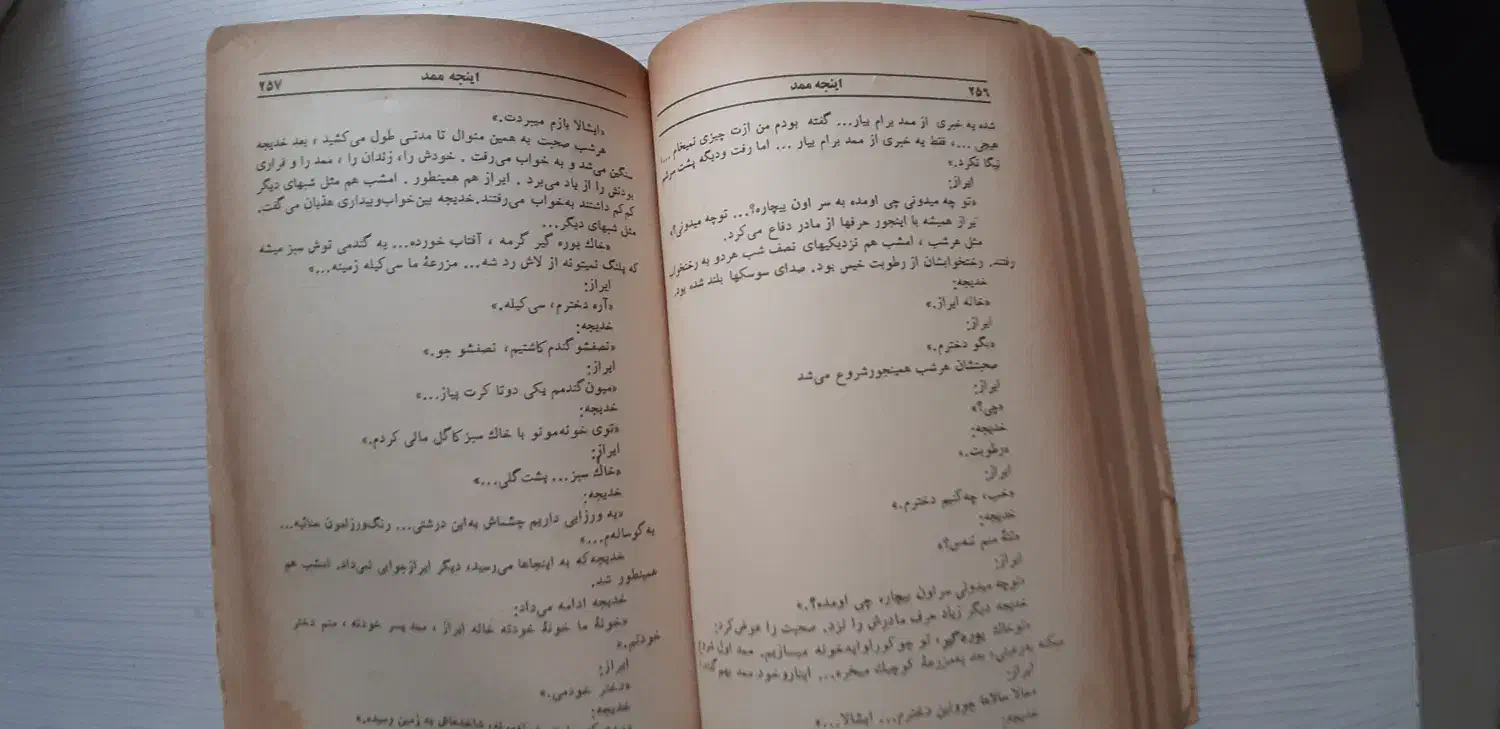 ۲۵۶
اینجه ممد
شده یه خبری از ممد برام بیار... گفته بودم من ازت چیزی نمیخام ...،
هیچی ...، فقط یه خبری از ممد برام بیار ... اما رفت ودیگه پشت سرشم
نیگا نکرد.»
ایراز:
«تو چه میدونی چی اومده به سر اون بیچاره؟... توچه میدونی؟»
ایراز همیشه با اینجور حرفها از مادر دفاع می‌کرد.
مثل هرشب ، امشب هم نزدیکیهای نصف شب هردو به رختخواب
رفتند. رختخوابشان از رطوبت خیس بود. صدای سوسکها بلند شده بود.
خدیجه:
«خاله ایراز.»
ایراز:
«بگو دخترم.»
صحبتشان هرشب همینجورشروع می‌شد
ایراز:
«چی؟»
خدیجه:
«رطوبت.»
ایراز:
«خب، چه‌کنیم دخترم.»
خدیجه:
«ننهٔ منم ننه‌س؟»
ایراز:
«توچه میدونی سراون بیچاره چی اومده؟.»
خدیجه دیگر زیاد حرف مادرش را نزد. صحبت را عوض کرد:
«توخاك یوره‌گیر، تو چوکوراوایه‌خونه میسازیم. ممد اول
میکنه بعد یه‌مزرعهٔ کوچیك میخره... اینارو خود ممد بهم
ایراز:
«حالا حالاها جوونین دخترم... ایشالا...»
خدیجه:
۲۵۷
اینجه ممد
«ایشالا بازم میبردت.»
هرشب صحبت به همین منوال تا مدتی طول می‌کشید ، بعد خدیجه
سنگین می‌شد و به خواب می‌رفت . خودش را، زندان را ، ممد را و فراری
بودنش را از یاد می‌برد . ایراز هم همینطور . امشب هم مثل شبهای دیگر
کم‌کم داشتند به‌خواب می‌رفتند.خدیجه بین‌خواب‌وبیداری هذیان می‌گفت.
مثل شبهای دیگر...
«خاك یوره گیر گرمه ، آفتاب خورده... یه گندمی توش سبز میشه
که پلنگ نمیتونه از لاش رد شه... مزرعهٔ ما سی‌کیله زمینه...»
ایراز:
«آره دخترم، سی‌کیله.»
خدیجه:
«نصفشو گندم کاشتیم، نصفشو جو.»
ایراز:
«میون‌گندمم یکی دوتا کرت پیاز...»
خدیجه:
«توی خونه‌مونو با خاك سبز کاگل مالی کردم.»
ایراز:
«خاك سبز... پشت‌گلی...»
خدیجه:
«یه ورزایی داریم چشماش به‌این درشتی... رنگ‌ورزامون حنائیه...
یه‌گوساله‌م...»
خدیجه‌که به اینجاها می‌رسید، دیگر ایرازجوابی نمی‌داد. امشب هم
همینطور شد.
خدیجه ادامه می‌داد:
«خونهٔ ما خونهٔ خودته خاله ایراز ، ممد پسر خودته ، منم دختر
خودتم.»
ایراز:
«دختر خودمی.»
خدیجه:
شاخه‌هاش به زمین رسیده.»